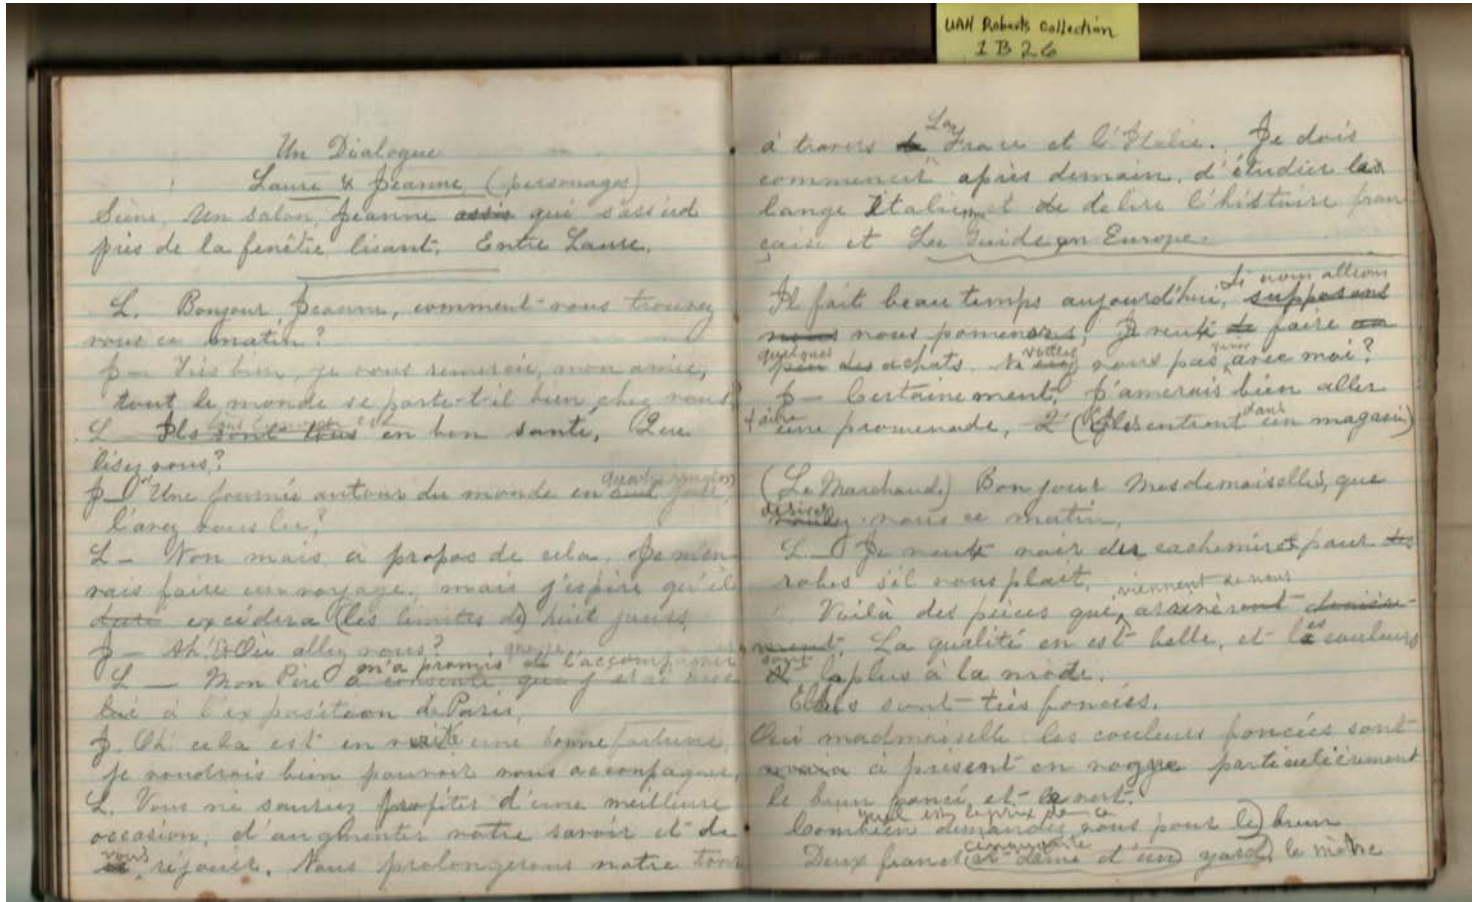 UAH Roberts Collection
1 B 26
Un Dialogue
Laure & Jeanne (personages)
Scène, Un salon, Jeanne assis qui s'assied
près de la fenêtre lisant. Entre Laure.
L. Bonjour Jeanne, comment vous trouvez
vous ce matin?
J— Très bien, je vous remercie, mon amie,
tout le monde se porte-t-il bien chez vous
L— Ils sont tous en bon sante, Que
lisez vous?
J— "Une journée autour du monde en
l'avez vous lu?
L— Non mais à propos de cela. Je m'en
vais faire un voyage, mais j'espère qu'il
excédera (les limites de) huit jours.
J— Ah! Où allez vous?
m'a promis de l'accompagner
L— Mon Père a consenté que j'
lui à l'exposition de Paris,
J. Oh! cela est en verité une bonne fortune,
je voudrais bien pouvoir vous accompagner,
L. Vous ne sauriez profiter d'une meilleure
occasion, d'aughmenter votre savoir et de
vous réjouir. Nous prolongerons notre tour
La
à travers France et l'Italie. Je dois
après demain, d'étudier la
lange Italien et de lire l'histoire fran
çaise et Le Guide en Europe.
Si nous allions
Il fait beau temps aujourd'hui, supposons
nous nous pomener, Je veux de faire un
quelques
des achats. vous pas avec moi?
J— Certainement, J'amerais bien aller
faire
une promenade, 2' (Elles entrent dans un magasin)
(Le Marchand) Bonjour Mesdemoiselles, que
désirez
voulez vous ce matin,
L— Je veux voir des cachemires pour des
robes s'il vous plait,
viennent de nous
Voilà des pièces que
La qualité en est belle, et les couleurs
sont
la plus à la mode.
Elles sont très foncées.
Oui madmoiselle les couleurs foncées sont
à présent en vogue particulièrement
le brun foncé et le vert.
quel est le prix de ce
Combien demandez vous pour le) brun
cinquante
Deux francs (et demi d'un yard) le mètre